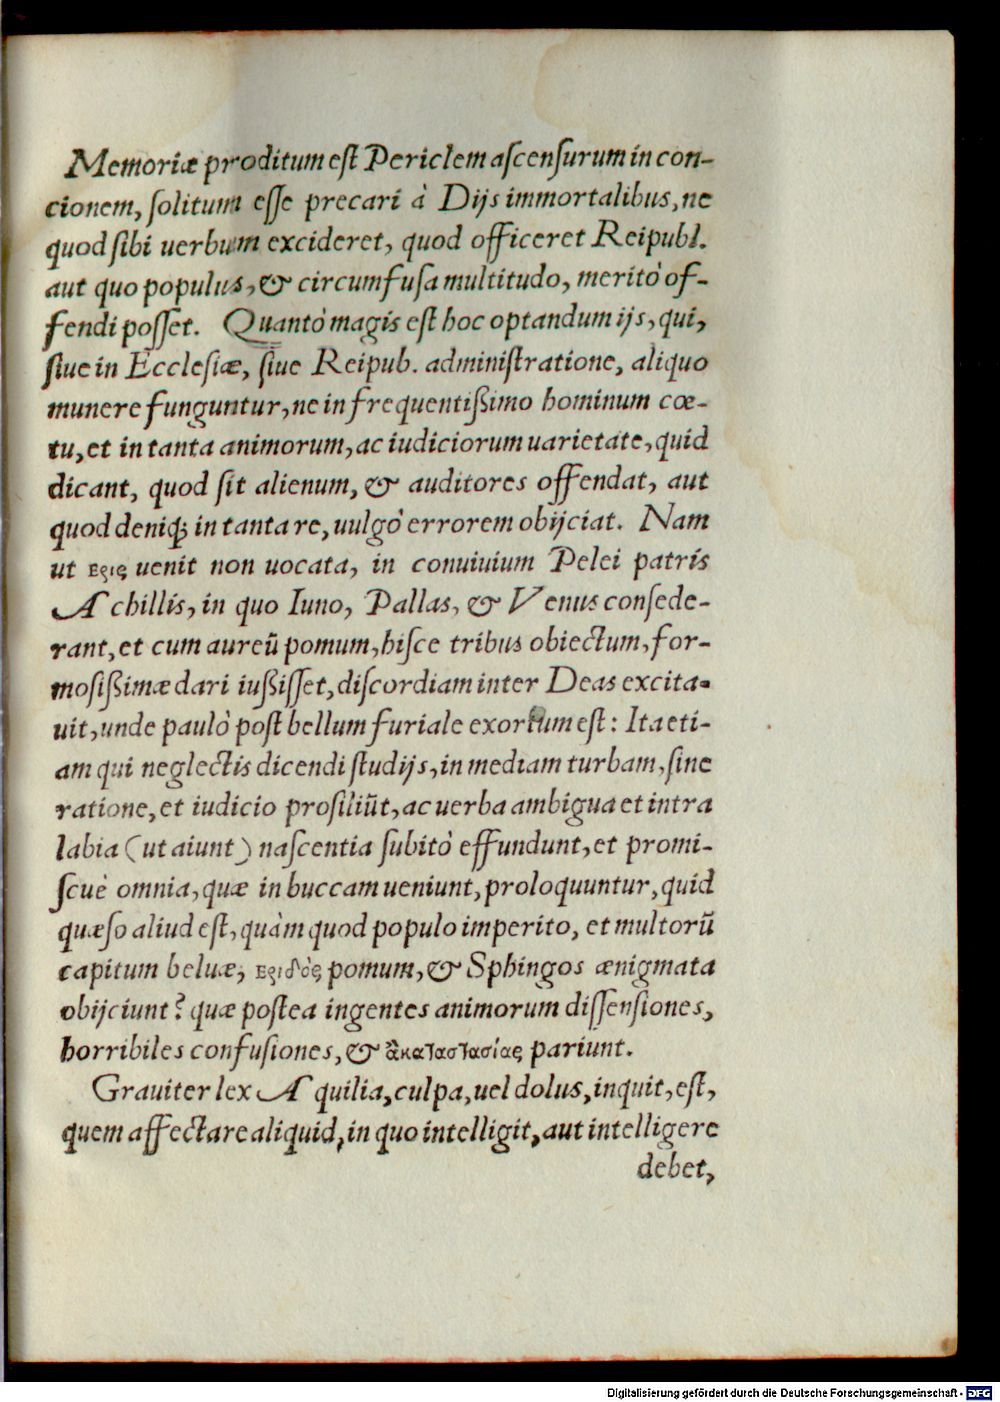 Memoriæ proditum est Periclem ascensurum in con-
cionem, solitum esse precari à Dijs immortalibus, ne
quod sibi uerbum excideret, quod officeret Reipubl.
aut quo populus, & circumfusa multitudo, meritò of-
fendi posset. Quantò magis est hoc optandum ijs, qui,
siue in Ecclesiæ, siue Reipub. administratione, aliquo
munere funguntur, ne in frequentißimo hominum cœ-
tu, et in tanta animorum, ac iudiciorum uarietate, quid
dicant, quod sit alienum, & auditores offendat, aut
quod deniq; in tanta re, uulgò errorem obijciat. Nam
ut ερις uenit non uocata, in conuiuium Pelei patris
Achillis, in quo Iuno, Pallas, & Venus consede-
rant, et cum aureũ pomum, hisce tribus obiectum, for-
mosißimæ dari iußisset, discordiam inter Deas excita-
uit, unde paulò post bellum furiale exortum est: Ita eti-
am qui neglectis dicendi studijs, in mediam turbam, sine
ratione, et iudicio prosiliũt, ac uerba ambigua et intra
labia (ut aiunt) nascentia subitò effundunt, et promi-
scuè omnia, quæ in buccam ueniunt, proloquuntur, quid
quæso aliud est, quàm quod populo imperito, et multorũ
capitum beluæ, εριδὸς pomum, & Sphingos ænigmata
obijciunt? quæ postea ingentes animorum dissensiones,
horribiles confusiones, & ἀκαταστασίας pariunt.
Grauiter lex Aquilia, culpa, uel dolus, inquit, est,
quem affectare aliquid, in quo intelligit, aut intelligere
debet,
Digitalisierung gefördert durch die Deutsche Forschungsgemeinschaft - DFG